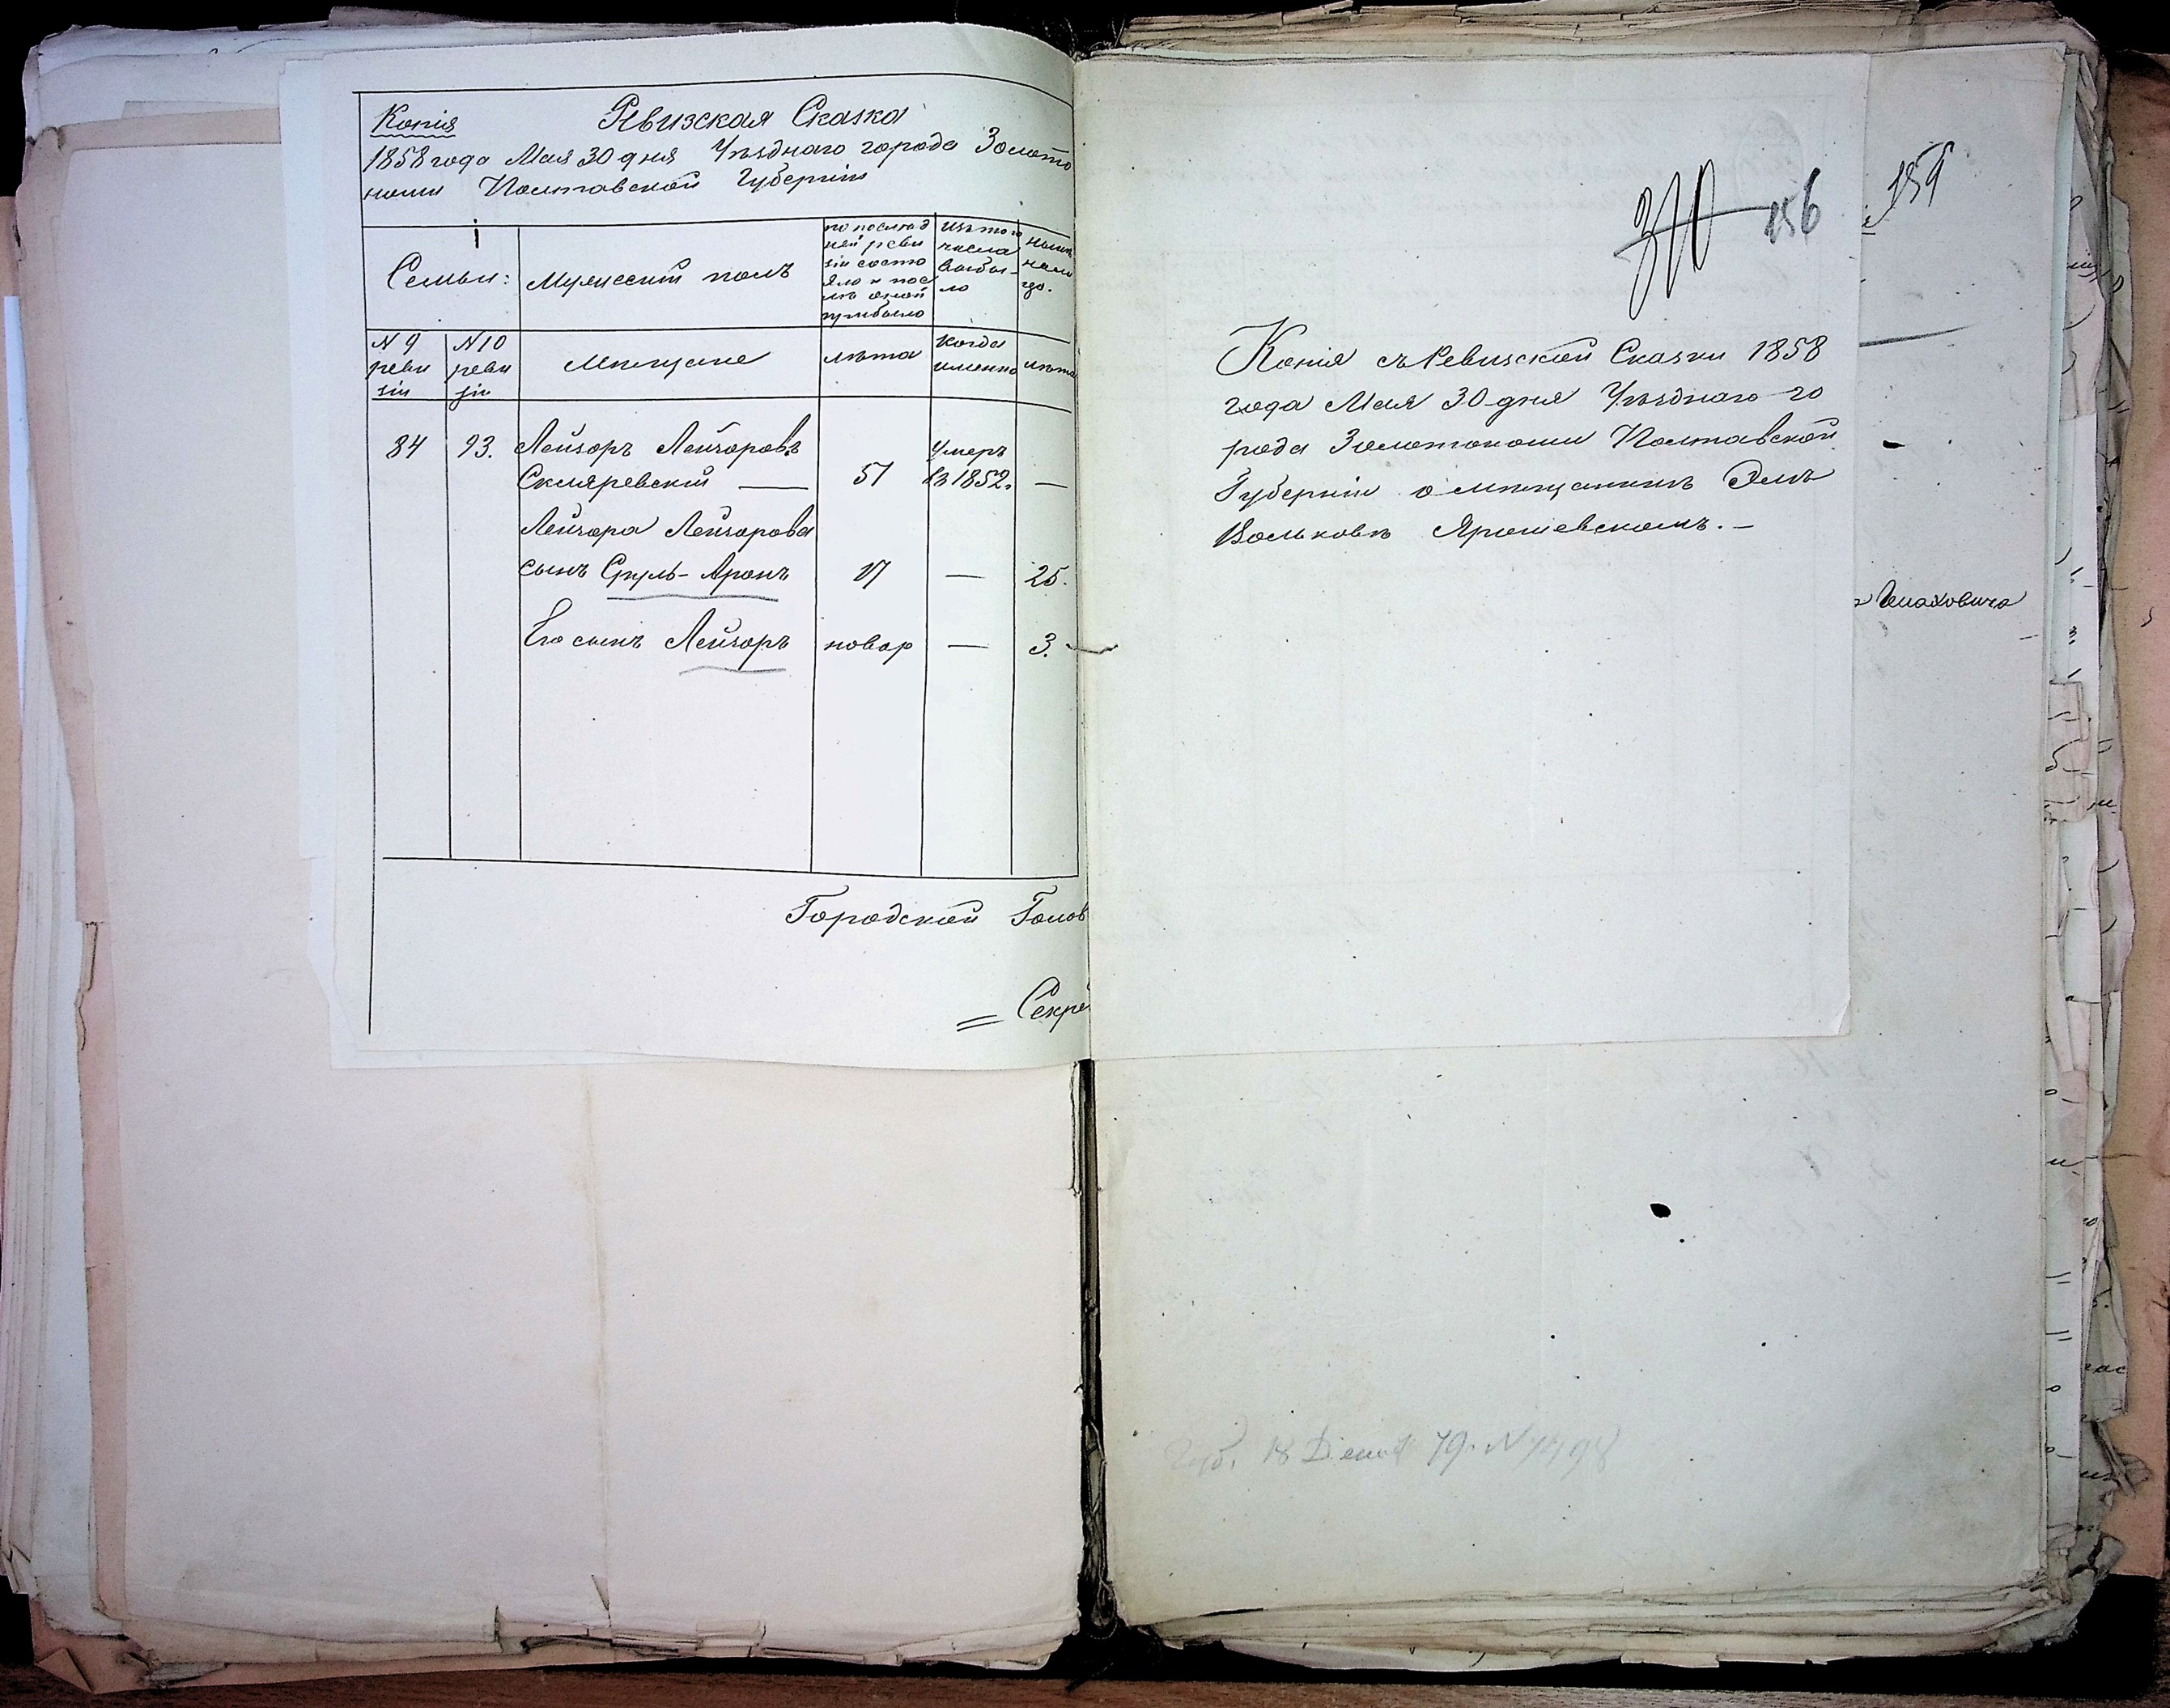 Копія Ревизская Сказка
1858 года Мая 30 дня Уѣзднаго города Золото
ноши Полтавской Губерніи
Семьи:
Мужескій полъ
по послѣд
ней реви
зіи состо
яло и пос
лѣ оной
прибыло
Изъ того
числа
выбы-
ло
нынѣ
на ли
цо.
№ 9
реви
зіи
№ 10
реви
зіи
Мѣщане
лѣта
когда
именно
лѣта
84 93. Лейзоръ Лейзоровъ Умеръ
Скляревскій — 51 въ 1852. —
Лейзора Лейзорова
сынъ Сруль-Аронъ 17 — 25.
Его сынъ Лейзоръ новор — 3.
Городской Голов
Секре
156
159
Копія съ Ревизской Сказки 1858
года Мая 30 дня Уѣзднаго го
рода Золотоноши Полтавской
Губерніи о мѣщанинѣ Элѣ
Вольковѣ Ярошевскомъ. —